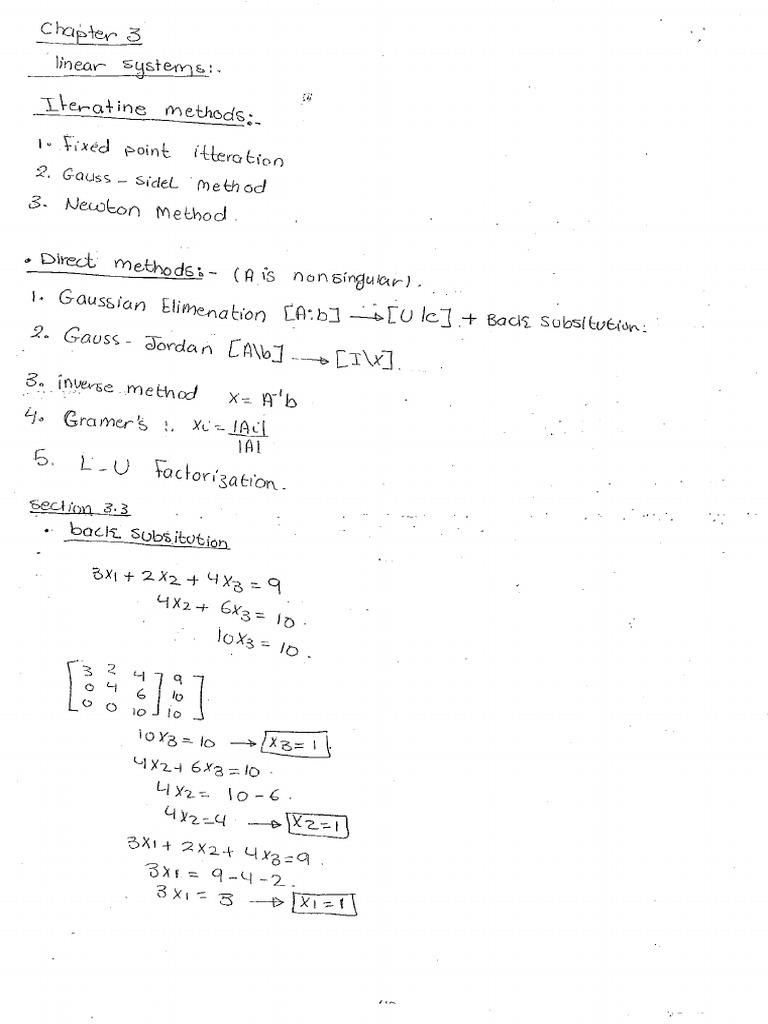 Chapter 3
linear systems:.
Iteratine methods:-
1. Fixed point itteration
2. Gauss - Sidel method
3. Newton Method.
• Direct methods:- (A is nonsingular).
1. Gaussian Elimenation [A:b] → [U|c] + Back Subsitution:
2. Gauss - Jordan [A\b] → [I\X].
3. inverse method x = A⁻¹b
4. Gramer's :. xi = |Ai| / |A|
5. L-U Factorization.
Section 3.3
• back subsitution
3x1 + 2x2 + 4x3 = 9
4x2 + 6x3 = 10.
10x3 = 10.
3 2 4 9
0 4 6 10
0 0 10 10
10x3 = 10 → x3 = 1
4x2 + 6x3 = 10.
4x2 = 10 - 6.
4x2 = 4 → x2 = 1
3x1 + 2x2 + 4x3 = 9.
3x1 = 9 - 4 - 2.
3x1 = 3 → x1 = 1